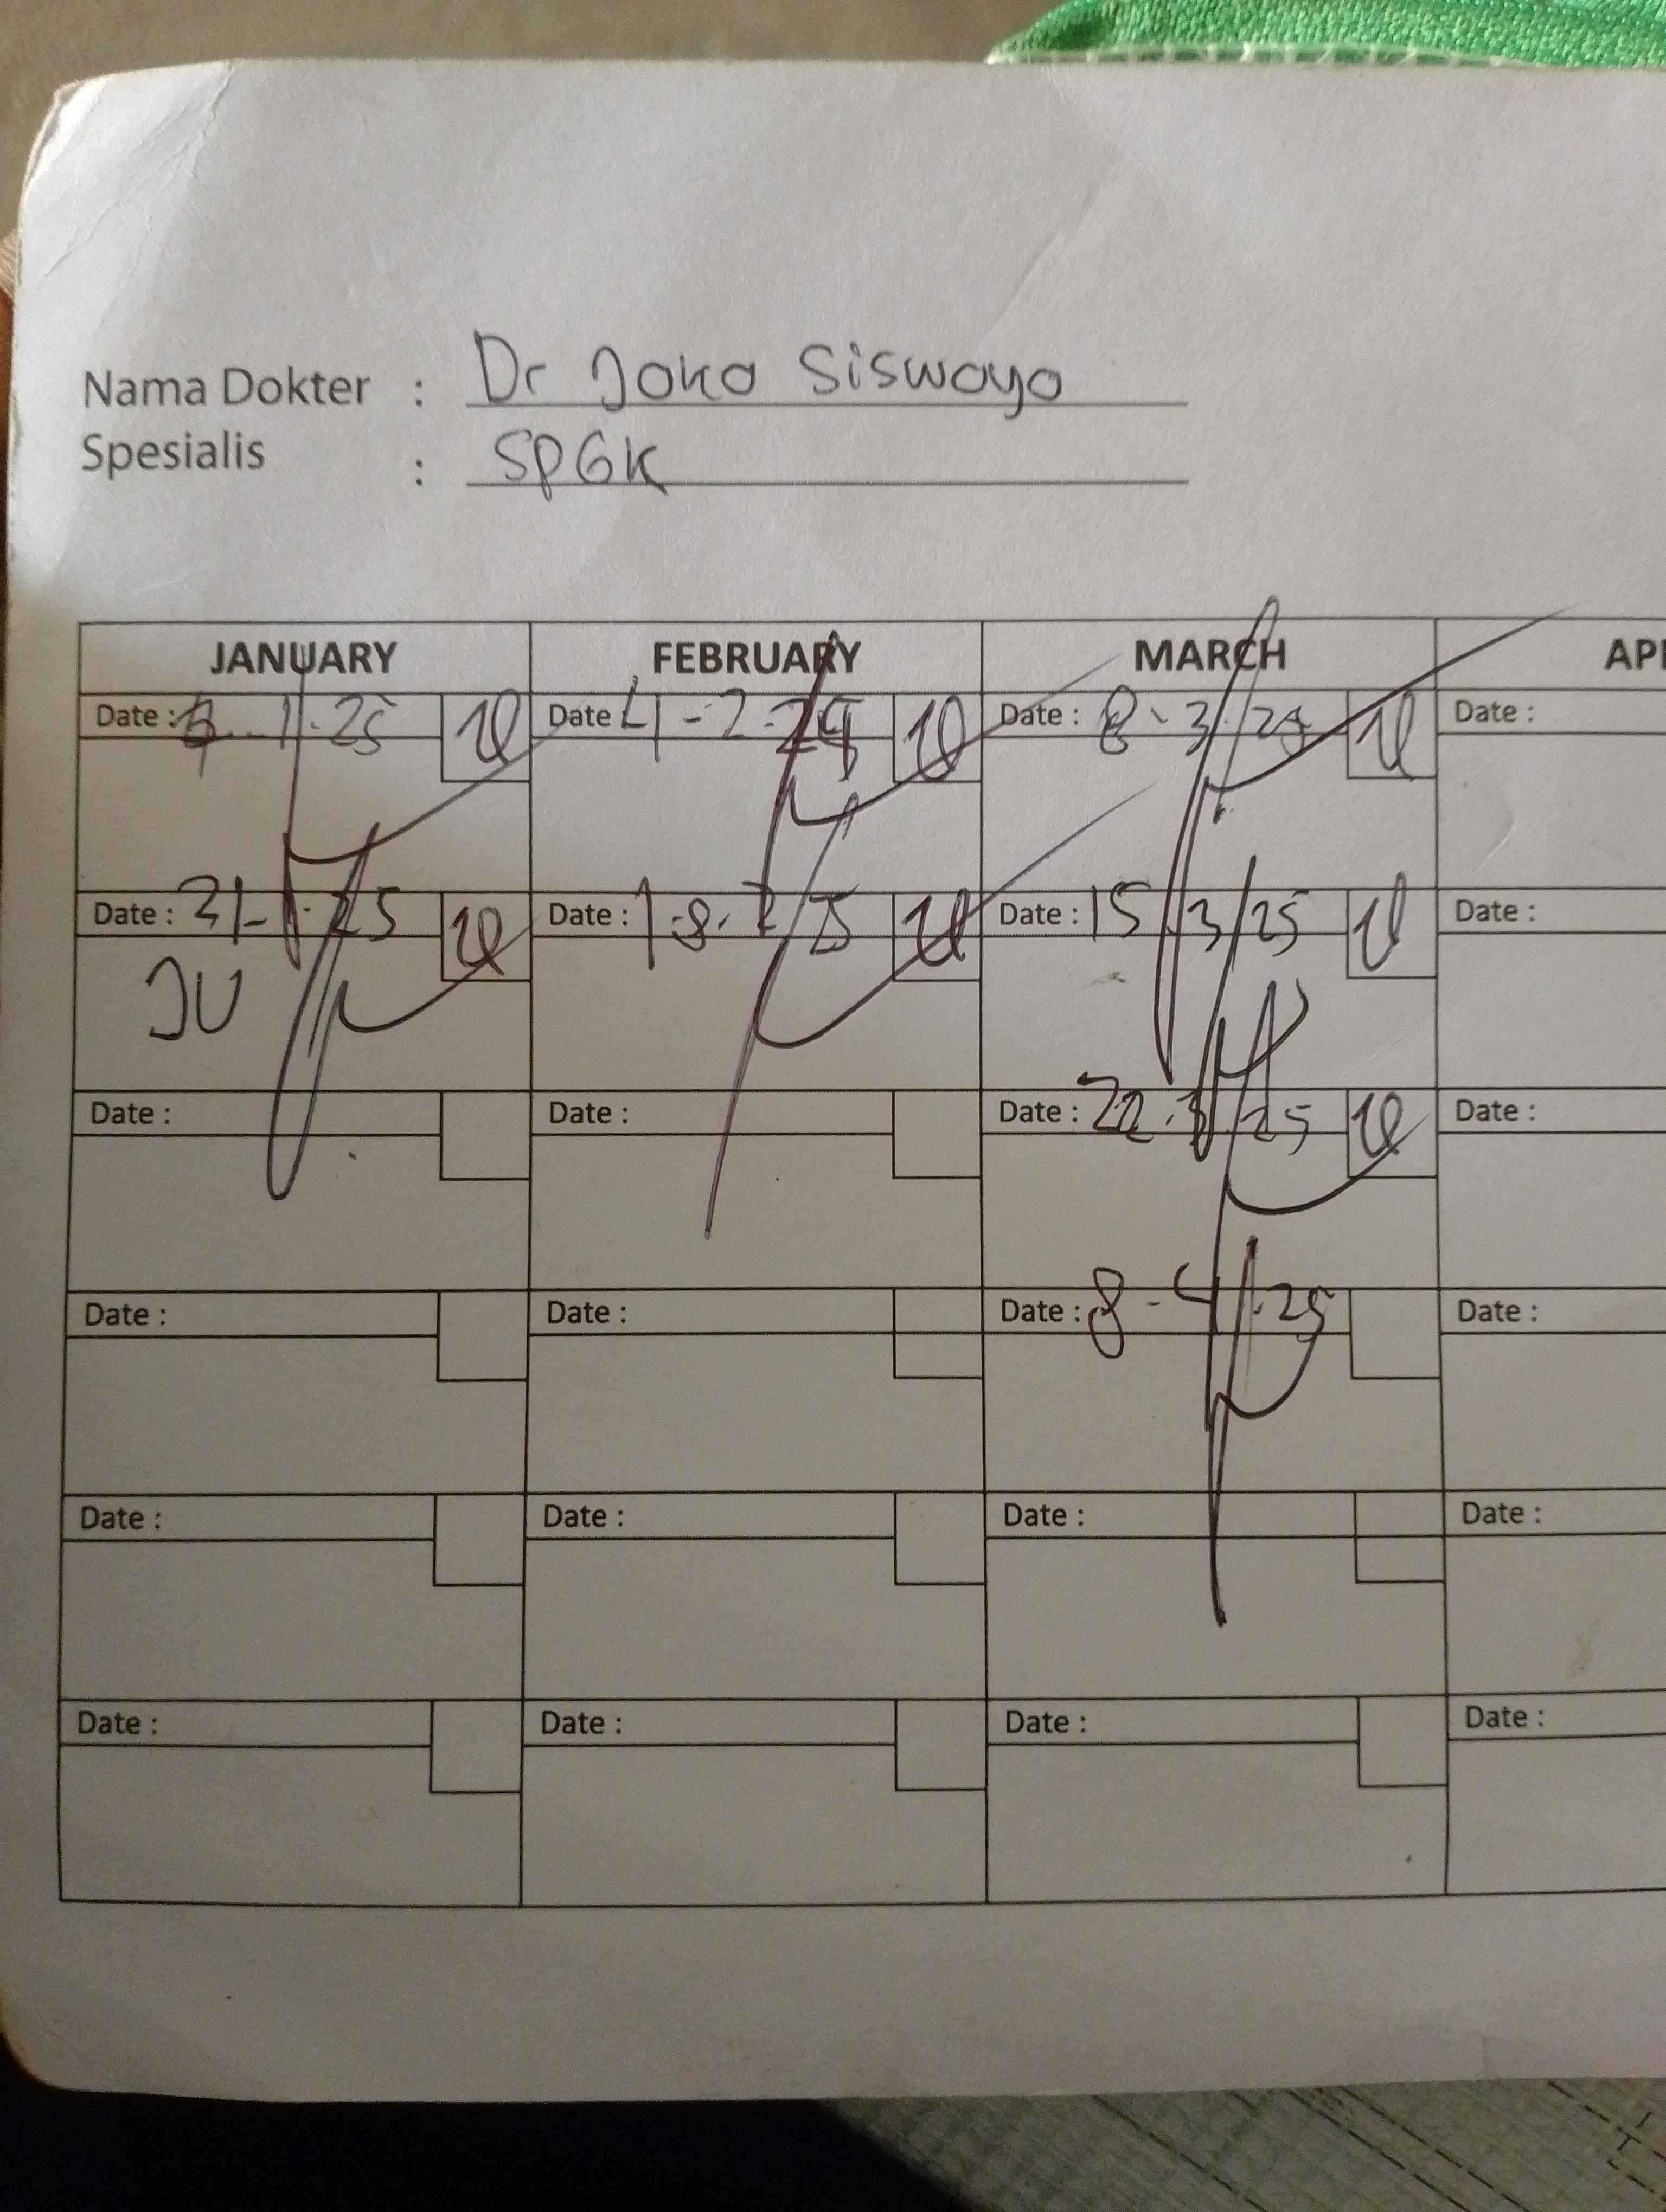 Nama Dokter : Dr Joko Siswoyo
Spesialis : SPGK
JANUARY FEBRUARY MARCH
Date : 1-25 Date : 4-2-25 Date : 8-3-25 Date :
Date : 21-1-25 Date : 18-2-25 Date : 15-3-25 Date :
JU
Date : Date : Date : 22-3-25 Date :
Date : Date : Date : 8-4-25 Date :
Date : Date : Date : Date :
Date : Date : Date : Date :